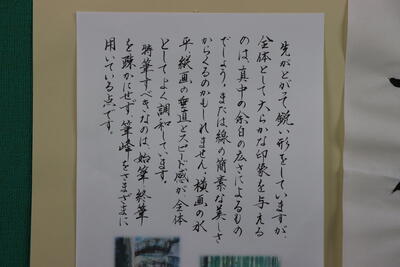 先がとがって鋭い形をしていますが、
全体として、大らかな印象を与える
のは、真中の余白の広さによるもの
でしょう。または線の簡素な美しさ
からくるのかもしれません。横画の水
平、縦画の垂直とスピード感が全体
としてよく調和しています。
特筆すべきなのは、始筆、終筆
を疎かにせず、筆峰をさまざまに
用いている点です。